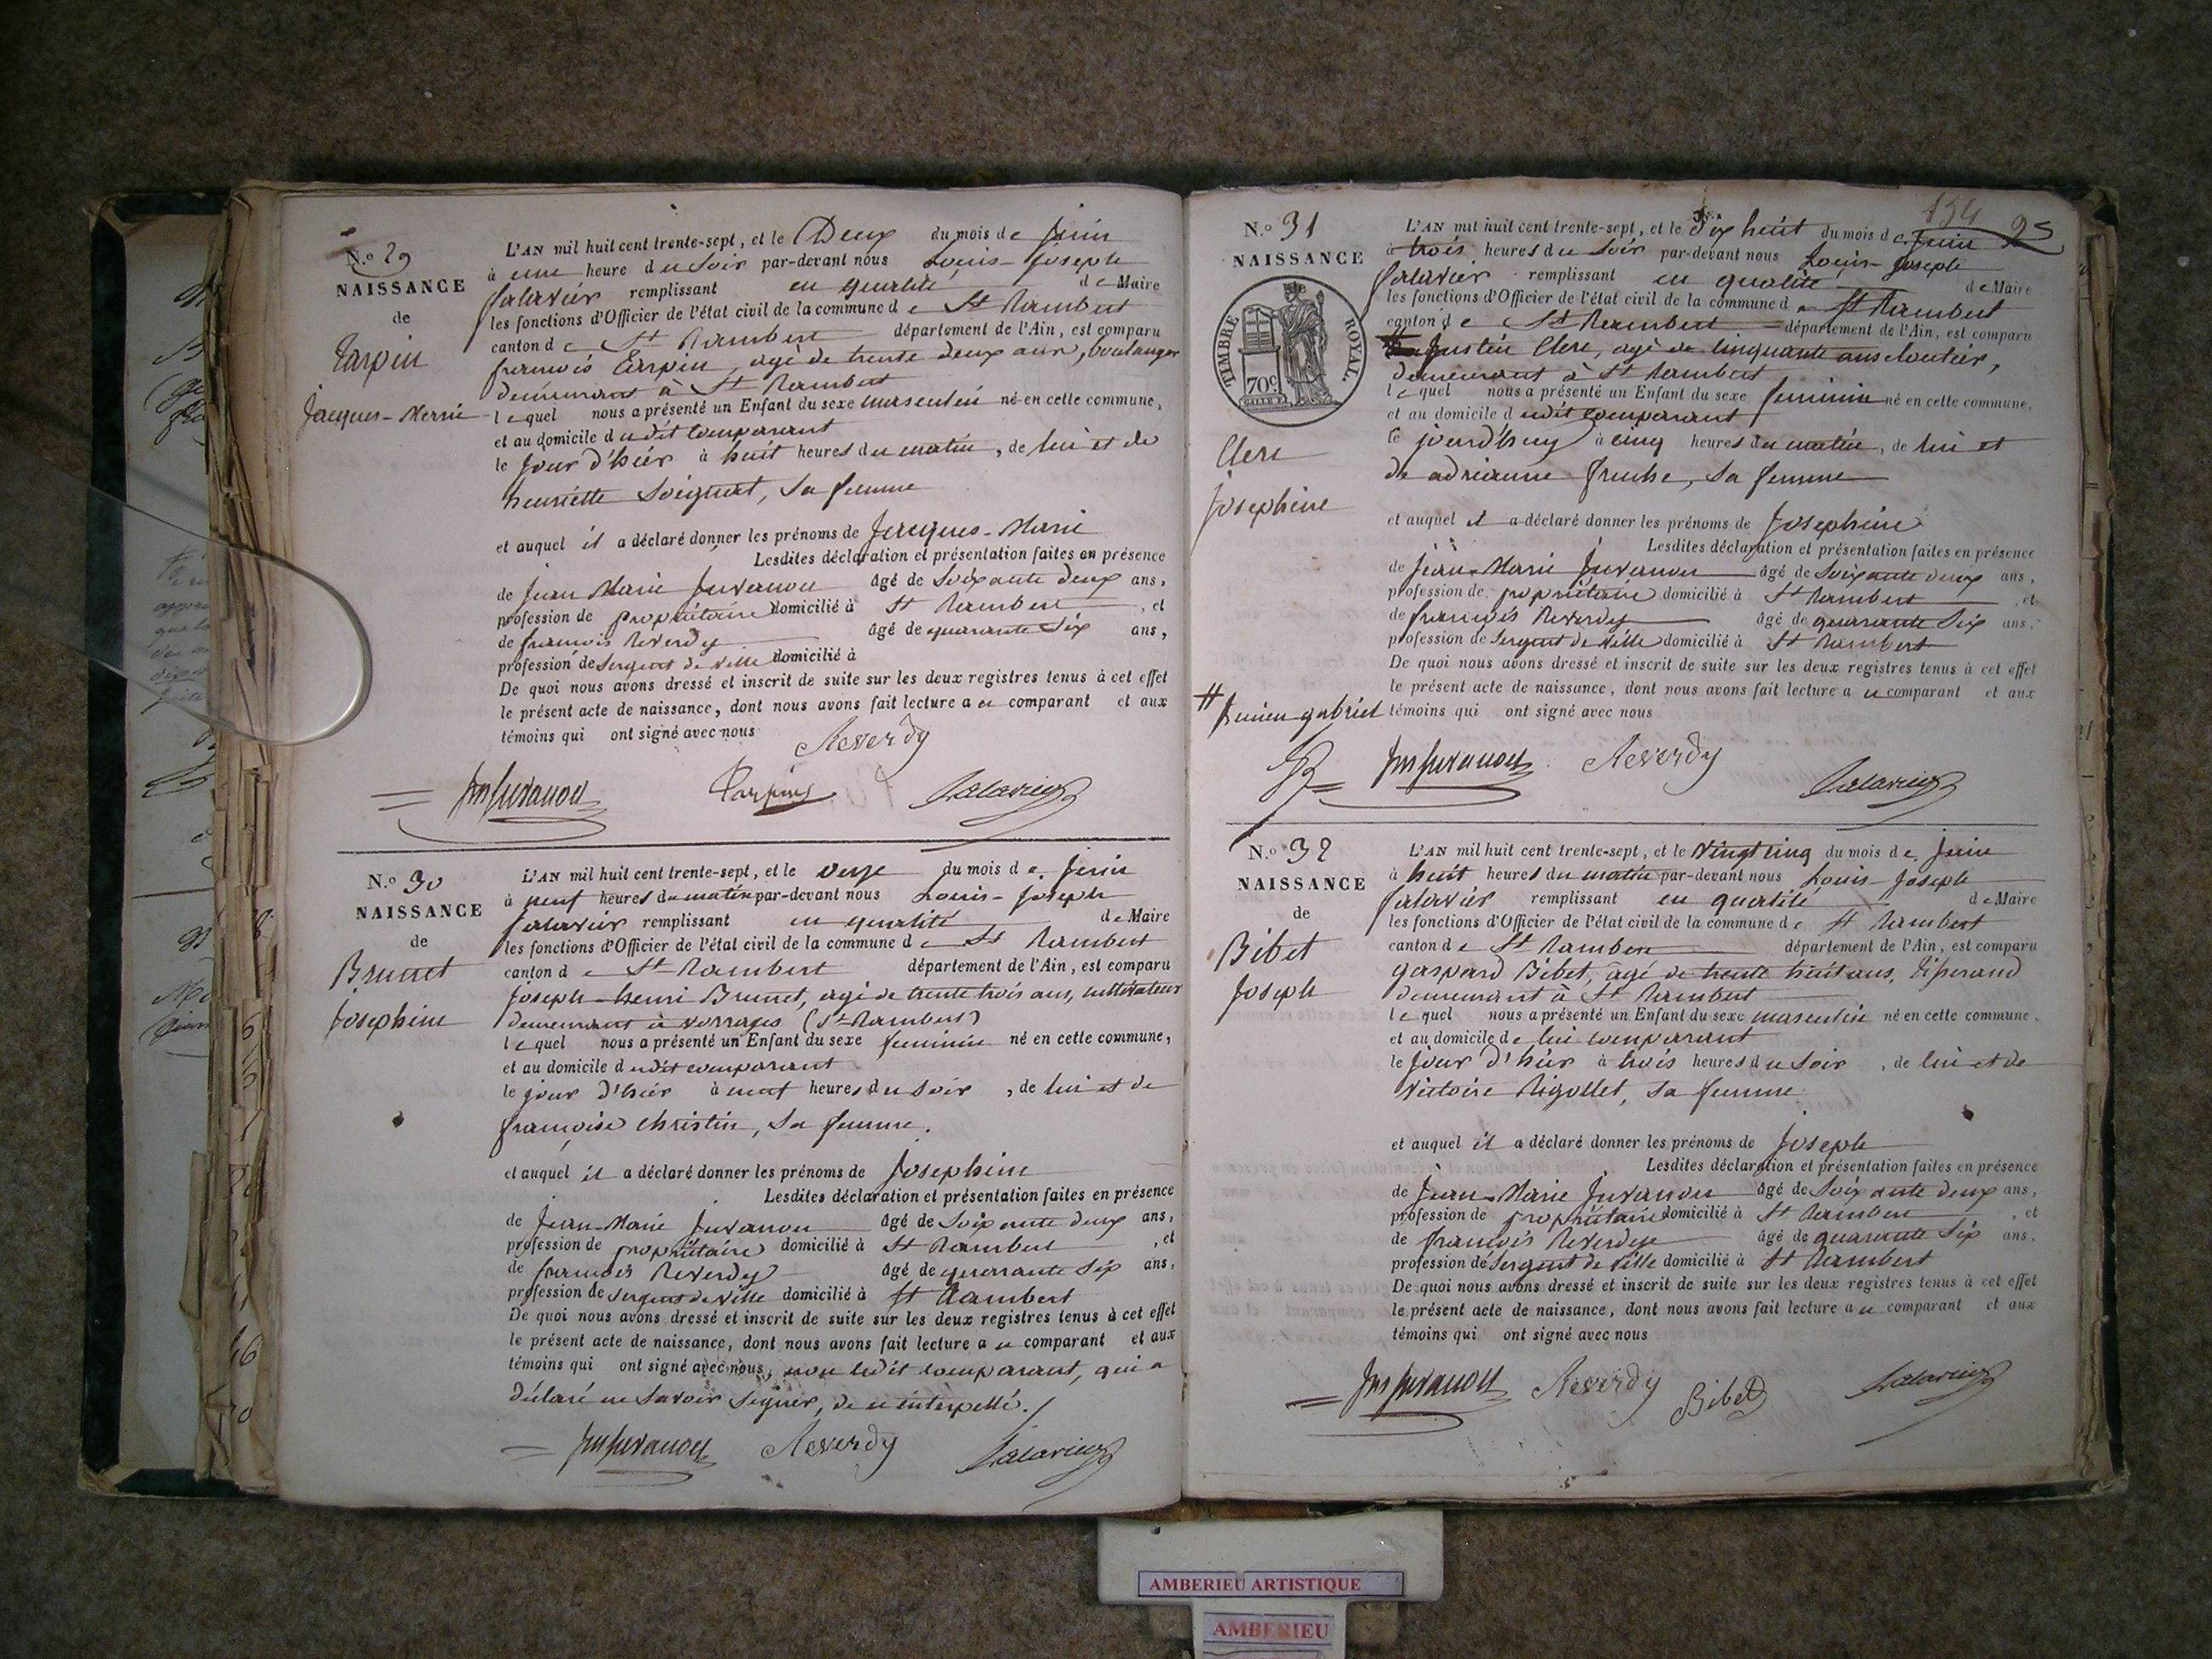 N.º 29
NAISSANCE
de
Tarpin
Jacques-Marie
L'AN mil huit cent trente-sept, et le Deux du mois de juin
à une heure du soir par-devant nous Louis-Joseph
Falavier remplissant en qualité de Maire
les fonctions d'Officier de l'état civil de la commune de St Rambert
canton de St Rambert département de l'Ain, est comparu
françois Tarpin, agé de trente deux ans, boulanger
demeurant à St Rambert
lequel nous a présenté un Enfant du sexe masculin né en cette commune,
et au domicile dudit comparant
le jour d'hier à huit heures du matin, de lui et de
henriette Soignat, sa femme
et auquel il a déclaré donner les prénoms de Jacques-Marie
Lesdites déclaration et présentation faites en présence
de Jean Marie Juvanon âgé de soixante deux ans,
profession de propriétaire domicilié à St Rambert, et
de françois Reverdy âgé de quarante six ans,
profession de sergent de ville domicilié à
De quoi nous avons dressé et inscrit de suite sur les deux registres tenus à cet effet
le présent acte de naissance, dont nous avons fait lecture au comparant et aux
témoins qui ont signé avec nous
Reverdy
Jm Juvanon Tarpin Falavier
N.º 30
NAISSANCE
de
Brunet
Josephine
L'AN mil huit cent trente-sept, et le onze du mois de juin
à neuf heures du matin par-devant nous Louis-Joseph
Falavier remplissant en qualité de Maire
les fonctions d'Officier de l'état civil de la commune de St Rambert
canton de St Rambert département de l'Ain, est comparu
joseph-henri Brunet, agé de trente trois ans, cultivateur
demeurant à vorrages (St Rambert)
lequel nous a présenté un Enfant du sexe feminin né en cette commune,
et au domicile dudit comparant
le jour d'hier à neuf heures du soir, de lui et de
françoise christin, sa femme.
et auquel il a déclaré donner les prénoms de Josephine
Lesdites déclaration et présentation faites en présence
de Jean-Marie Juvanon âgé de soixante deux ans,
profession de propriétaire domicilié à St Rambert, et
de françois Reverdy âgé de quarante six ans,
profession de sergent de ville domicilié à St Rambert
De quoi nous avons dressé et inscrit de suite sur les deux registres tenus à cet effet
le présent acte de naissance, dont nous avons fait lecture au comparant et aux
témoins qui ont signé avec nous, non ledit comparant, qui a
déclaré ne savoir signer, de ce interpellé./
Jm Juvanon Reverdy Falavier
154 25
N.º 31
NAISSANCE
TIMBRE ROYAL.
70c
Clerc
Josephine
L'AN mil huit cent trente-sept, et le dix huit du mois de juin
à trois heures du soir par-devant nous Louis-Joseph
Falavier remplissant en qualité de Maire
les fonctions d'Officier de l'état civil de la commune de St Rambert
canton de St Rambert département de l'Ain, est comparu
justin Clerc, agé de cinquante ans cloutier,
demeurant à St Rambert
lequel nous a présenté un Enfant du sexe feminin né en cette commune,
et au domicile dudit comparant
le jourd'huy à cinq heures du matin, de lui et
de adrianne fruche, sa femme
et auquel il a déclaré donner les prénoms de Josephine
Lesdites déclaration et présentation faites en présence
de Jean-Marie Juvanon âgé de soixante deux ans,
profession de propriétaire domicilié à St Rambert, et
de françois Reverdy âgé de quarante six ans,
profession de sergent de ville domicilié à St Rambert
De quoi nous avons dressé et inscrit de suite sur les deux registres tenus à cet effet
le présent acte de naissance, dont nous avons fait lecture au comparant et aux
# gabriel témoins qui ont signé avec nous
Jm Juvanon Reverdy Falavier
N.º 32
NAISSANCE
de
Bibet
Joseph
L'AN mil huit cent trente-sept, et le vingt cinq du mois de juin
à huit heures du matin par-devant nous Louis-Joseph
Falavier remplissant en qualité de Maire
les fonctions d'Officier de l'état civil de la commune de St Rambert
canton de St Rambert département de l'Ain, est comparu
gaspard Bibet, âgé de trente huit ans, tisserand
demeurant à St Rambert
lequel nous a présenté un Enfant du sexe masculin né en cette commune,
et au domicile de lui comparant
le jour d'hier à trois heures du soir, de lui et de
victoire Rigollet, sa femme
et auquel il a déclaré donner les prénoms de Joseph
Lesdites déclaration et présentation faites en présence
de Jean-Marie Juvanon âgé de soixante deux ans,
profession de propriétaire domicilié à St Rambert, et
de françois Reverdy âgé de quarante six ans,
profession de sergent de ville domicilié à St Rambert
De quoi nous avons dressé et inscrit de suite sur les deux registres tenus à cet effet
le présent acte de naissance, dont nous avons fait lecture au comparant et aux
témoins qui ont signé avec nous
Jm Juvanon Reverdy Bibet Falavier
AMBERIEU ARTISTIQUE
AMBERIEU